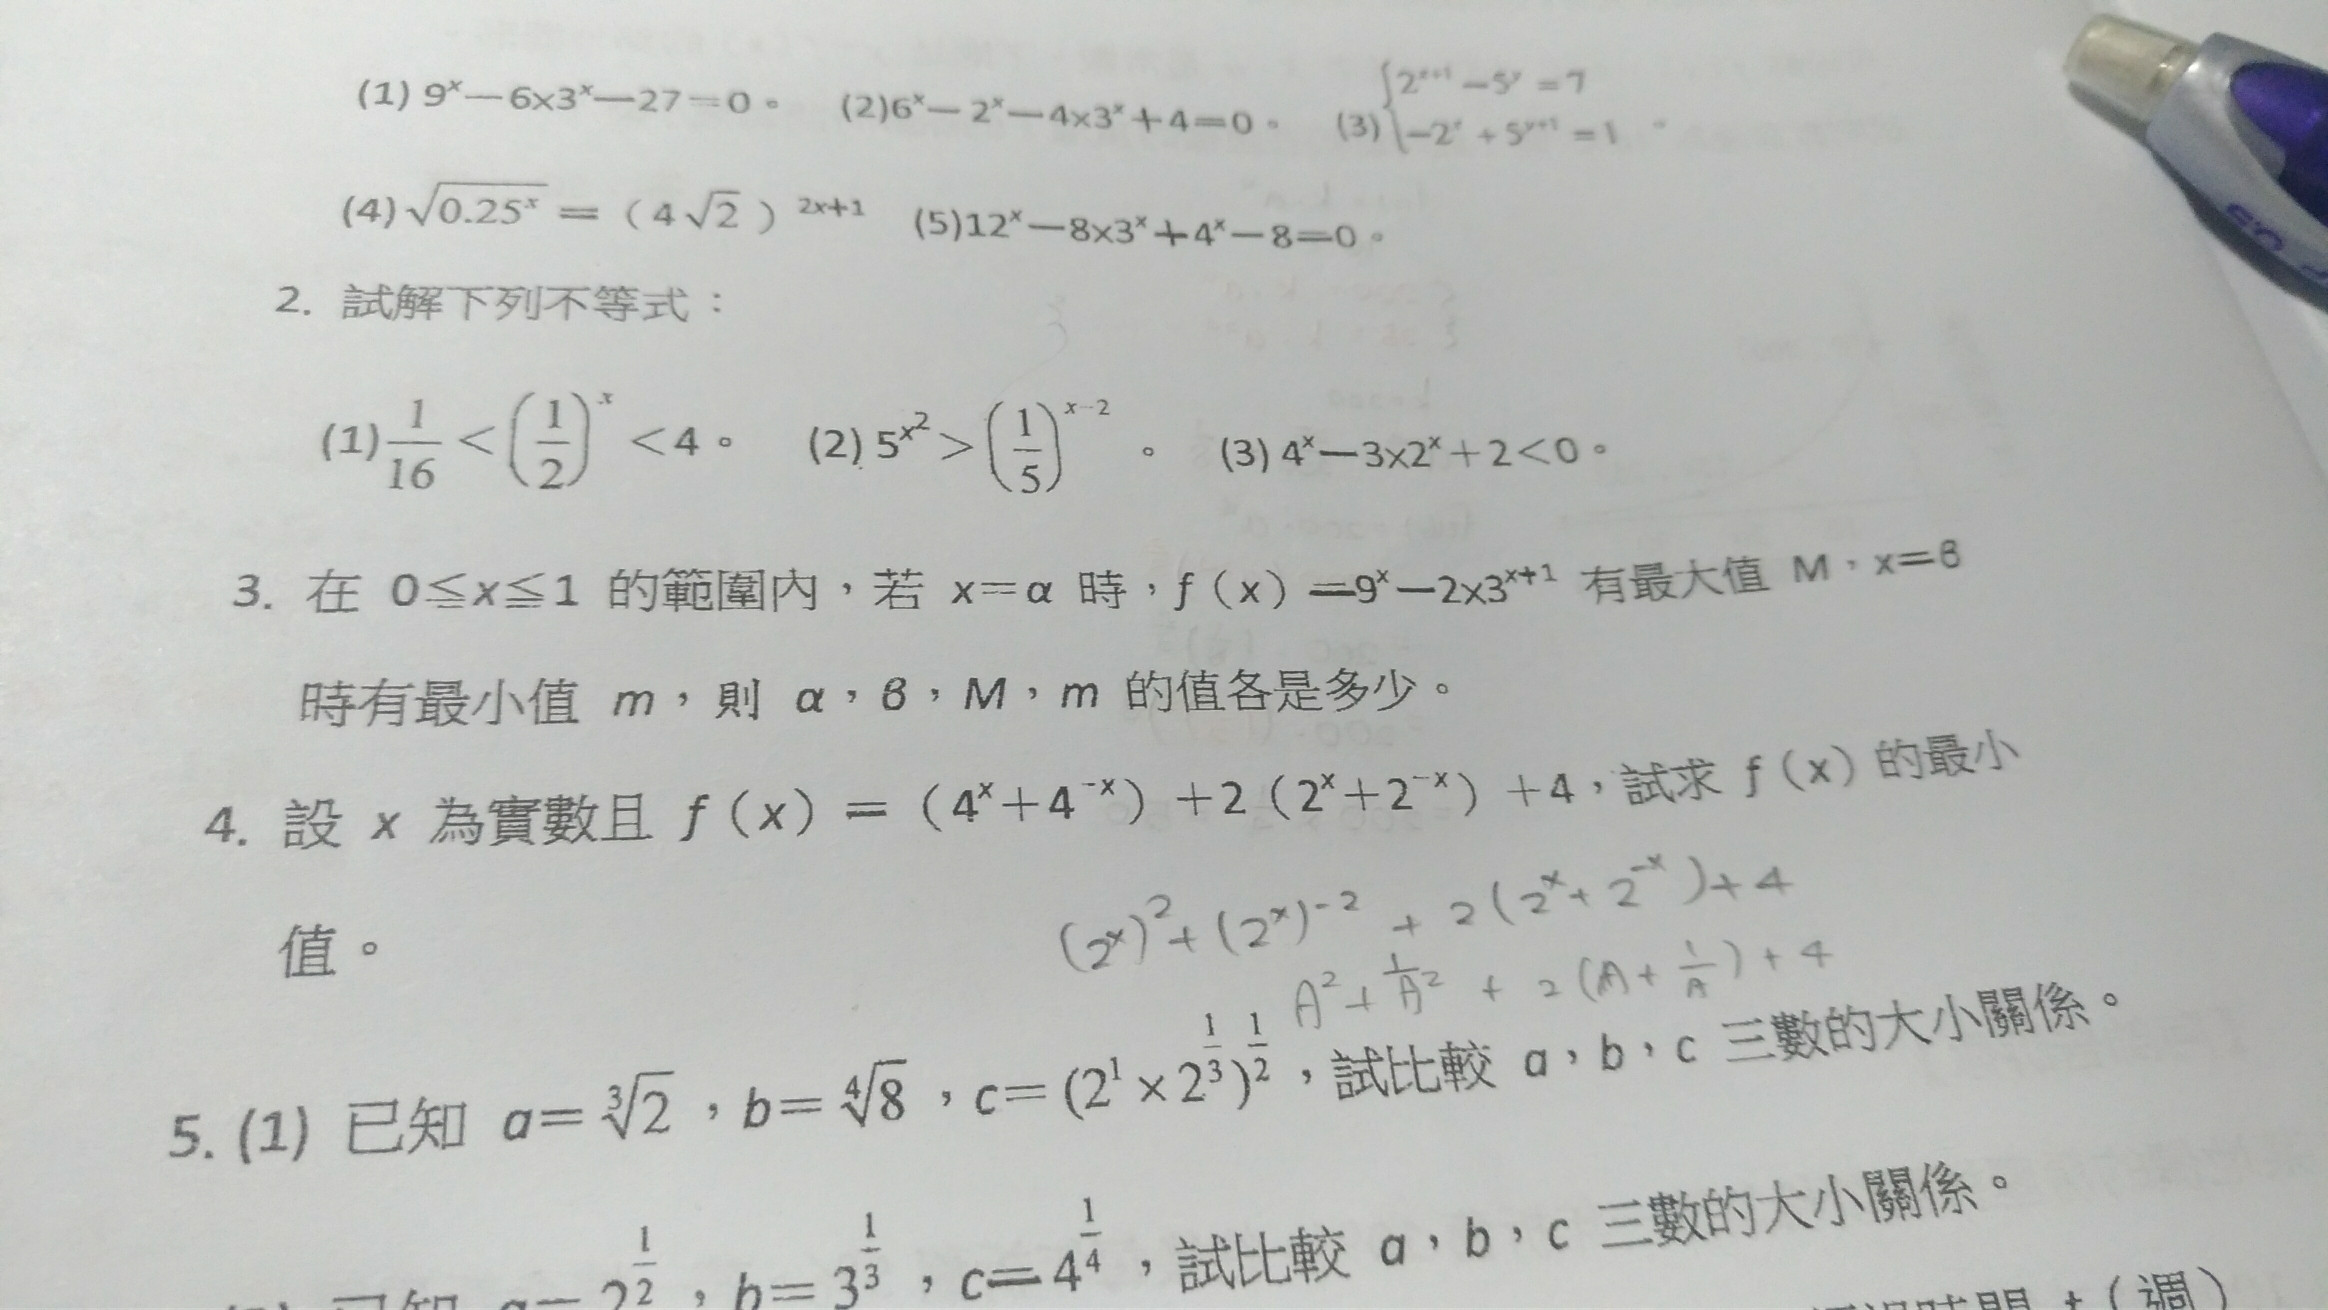 (1) 9ˣ－6x3ˣ－27＝0。 (2)6ˣ－2ˣ－4x3ˣ＋4＝0。 (3) {2ˣ⁺¹－5ʸ＝7
－2ˣ＋5ʸ⁺¹＝1 。
(4) √(0.25ˣ) ＝（4√2）²ˣ⁺¹ (5)12ˣ－8x3ˣ＋4ˣ－8＝0。
2. 試解下列不等式：
(1) 1/16 ＜ (1/2)ˣ ＜4。 (2) 5^x² ＞ (1/5)ˣ⁻² 。 (3) 4ˣ－3x2ˣ＋2＜0。
3. 在 0≦x≦1 的範圍內，若 x＝α 時，f（x）＝9ˣ－2x3ˣ⁺¹ 有最大值 M，x＝β
時有最小值 m，則 α，β，M，m 的值各是多少。
4. 設 x 為實數且 f（x）＝（4ˣ＋4⁻ˣ）＋2（2ˣ＋2⁻ˣ）＋4，試求 f（x）的最小
值。
(2ˣ)² + (2ˣ)⁻² + 2(2ˣ + 2⁻ˣ) + 4
A² + 1/A² + 2(A + 1/A) + 4
5. (1) 已知 a＝ ∛2，b＝ ∜8，c＝ (2¹ × 2^(1/3))^(1/2)，試比較 a，b，c 三數的大小關係。
已知 a＝2^(1/2)，b＝3^(1/3)，c＝4^(1/4)，試比較 a，b，c 三數的大小關係。
時間 t（週）
0.5